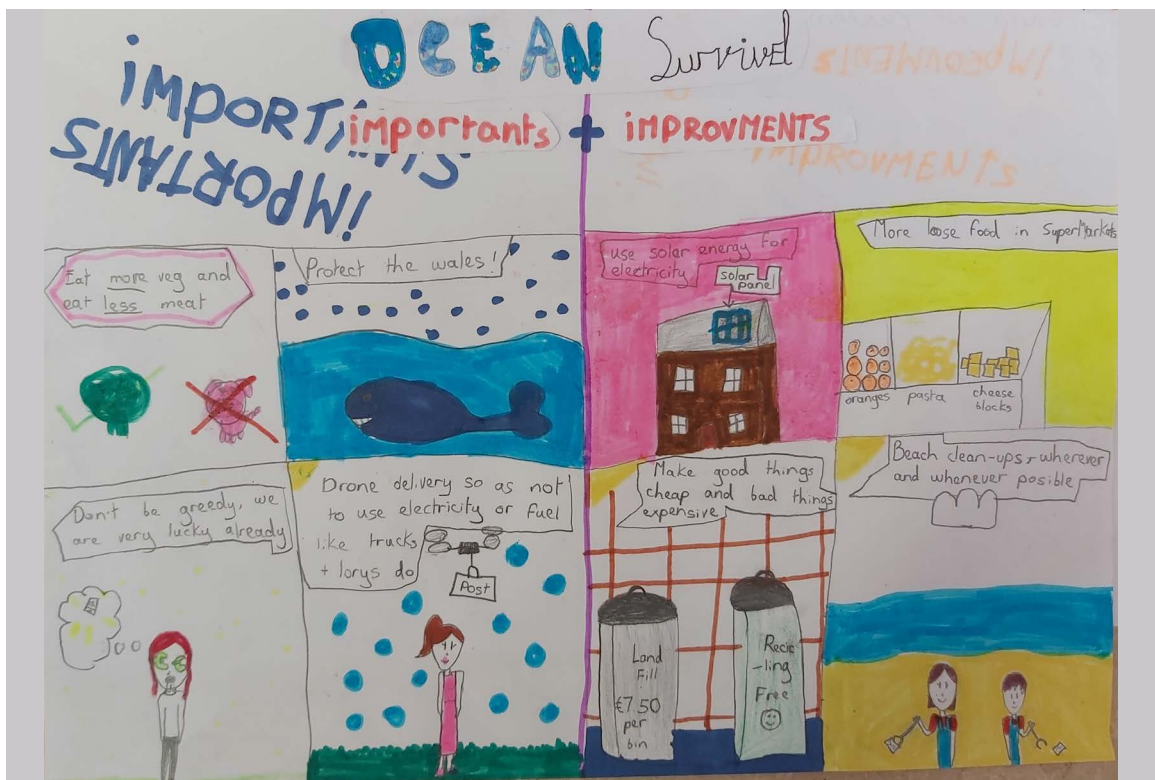 OCEAN Survivel
IMPROVMENTS
IMPORTANTS
importants + iMPROVMENTS
IMPROVMENTS
IMPORTANTS
Eat more veg and
eat less meat
Protect the wales!
use solar energy for
electricity
solar
panel
More loose food in SuperMarkets
oranges
pasta
cheese
blocks
Don't be greedy, we
are very lucky already
Drone delivery so as not
to use electricity or fuel
like trucks
+ lorys do
Post
Make good things
cheap and bad things
expensive
Land
Fill
€7.50
per
bin
Recic
-ling
Free
Beach clean-ups, wherever
and whenever posible